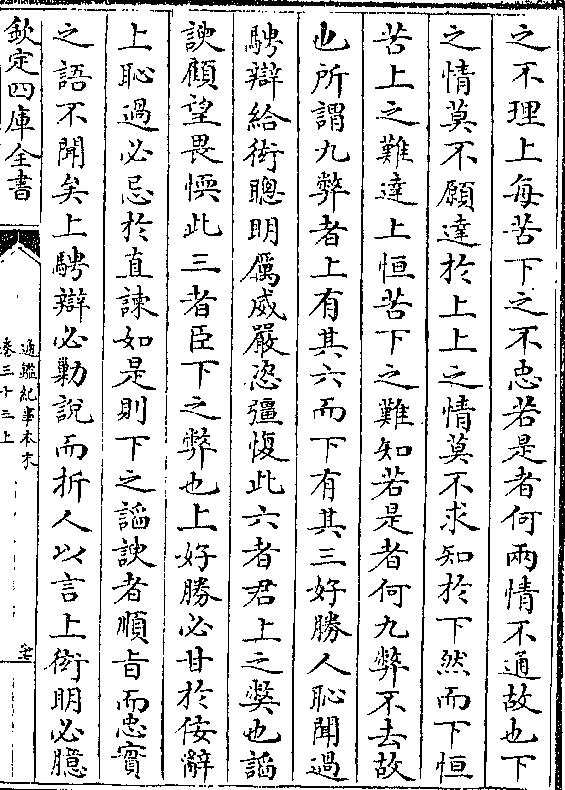 之不理上每苦下之不忠若是者何兩情不通故也下
之情莫不願達於上上之情莫不求知於下然而下恒
苦上之難達上恒苦下之難知若是者何九弊不去故
也所謂九弊者上有其六而下有其三好勝人恥聞過
騁辯給衒聰明厲威嚴恣彊愎此六者君上之獘也謟
諛顧望畏愞此三者臣下之弊也上好勝必甘於佞辭
上恥過必忌於直諫如是則下之謟諛者順旨而忠實
之語不聞矣上騁辯必勦說而折人以言上衒明必臆
欽定四庫全書
通鑑紀事本末
卷三十三上